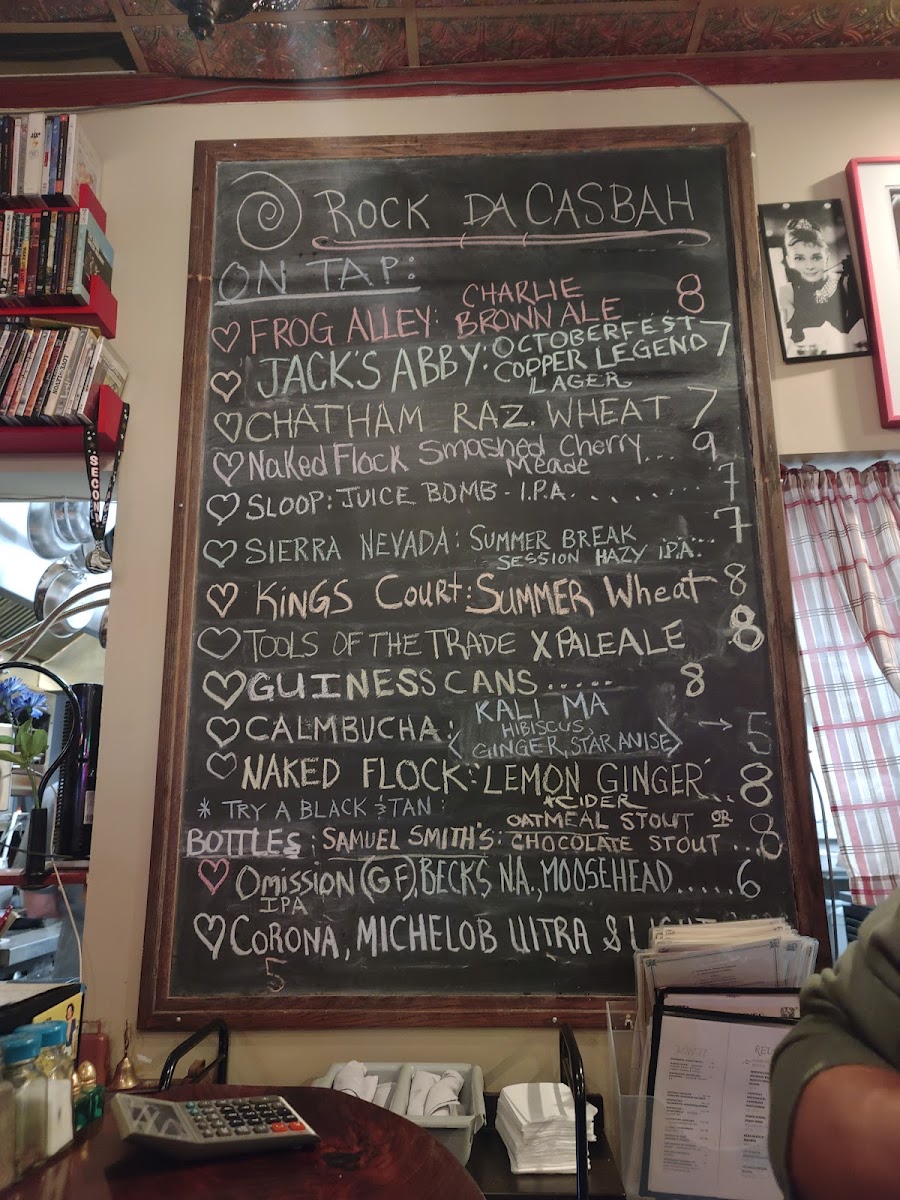 ROCK DA CASBAH
ON TAP:
FROG ALLEY: CHARLIE BROWN ALE 8
JACK'S ABBY: OCTOBERFEST COPPER LEGEND LAGER 7
CHATHAM RAZ. WHEAT 7
Naked Flock Smashed Cherry Meade... 9
SLOOP: JUICE BOMB - I.P.A........ 7
SIERRA NEVADA: SUMMER BREAK SESSION HAZY I.P.A. 7
KINGS COURT: SUMMER Wheat 8
TOOLS OF THE TRADE X PALE ALE 8
GUINESS CANS ..... 8
CALMBUCHA: KALI MA
<HIBISCUS, GINGER, STAR ANISE> → 5
NAKED FLOCK: LEMON GINGER CIDER... 8
* TRY A BLACK & TAN:
BOTTLES: SAMUEL SMITH'S: OATMEAL STOUT OR CHOCOLATE STOUT ... 8
OMISSION (GF), BECK'S NA., MOOSEHEAD..... 6
IPA
CORONA, MICHELOB UlTRA & LIGHT
5
SECON